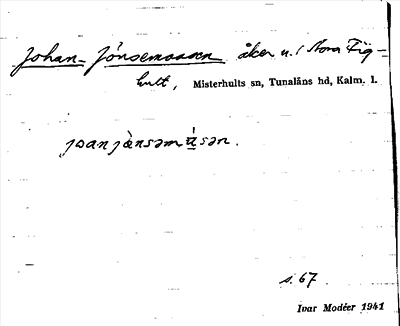 Johan-Jönsemossen åker u. / Stora Fig-
hult, Misterhults sn, Tunaläns hd, Kalm. l.
s. 67
Ivar Modéer 1941